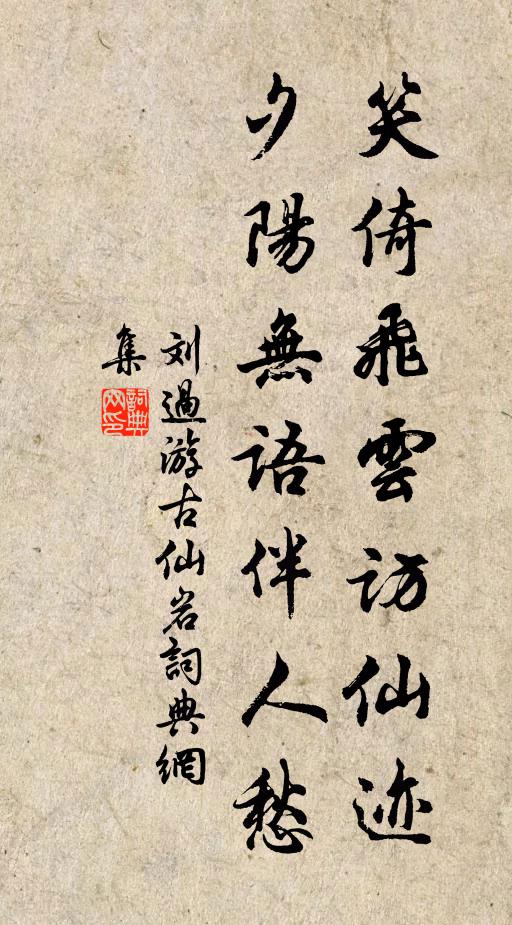 笑倚飛雲訪仙迹
夕陽無語伴人愁
刘過游古仙岩詞典網
集
詞典網印